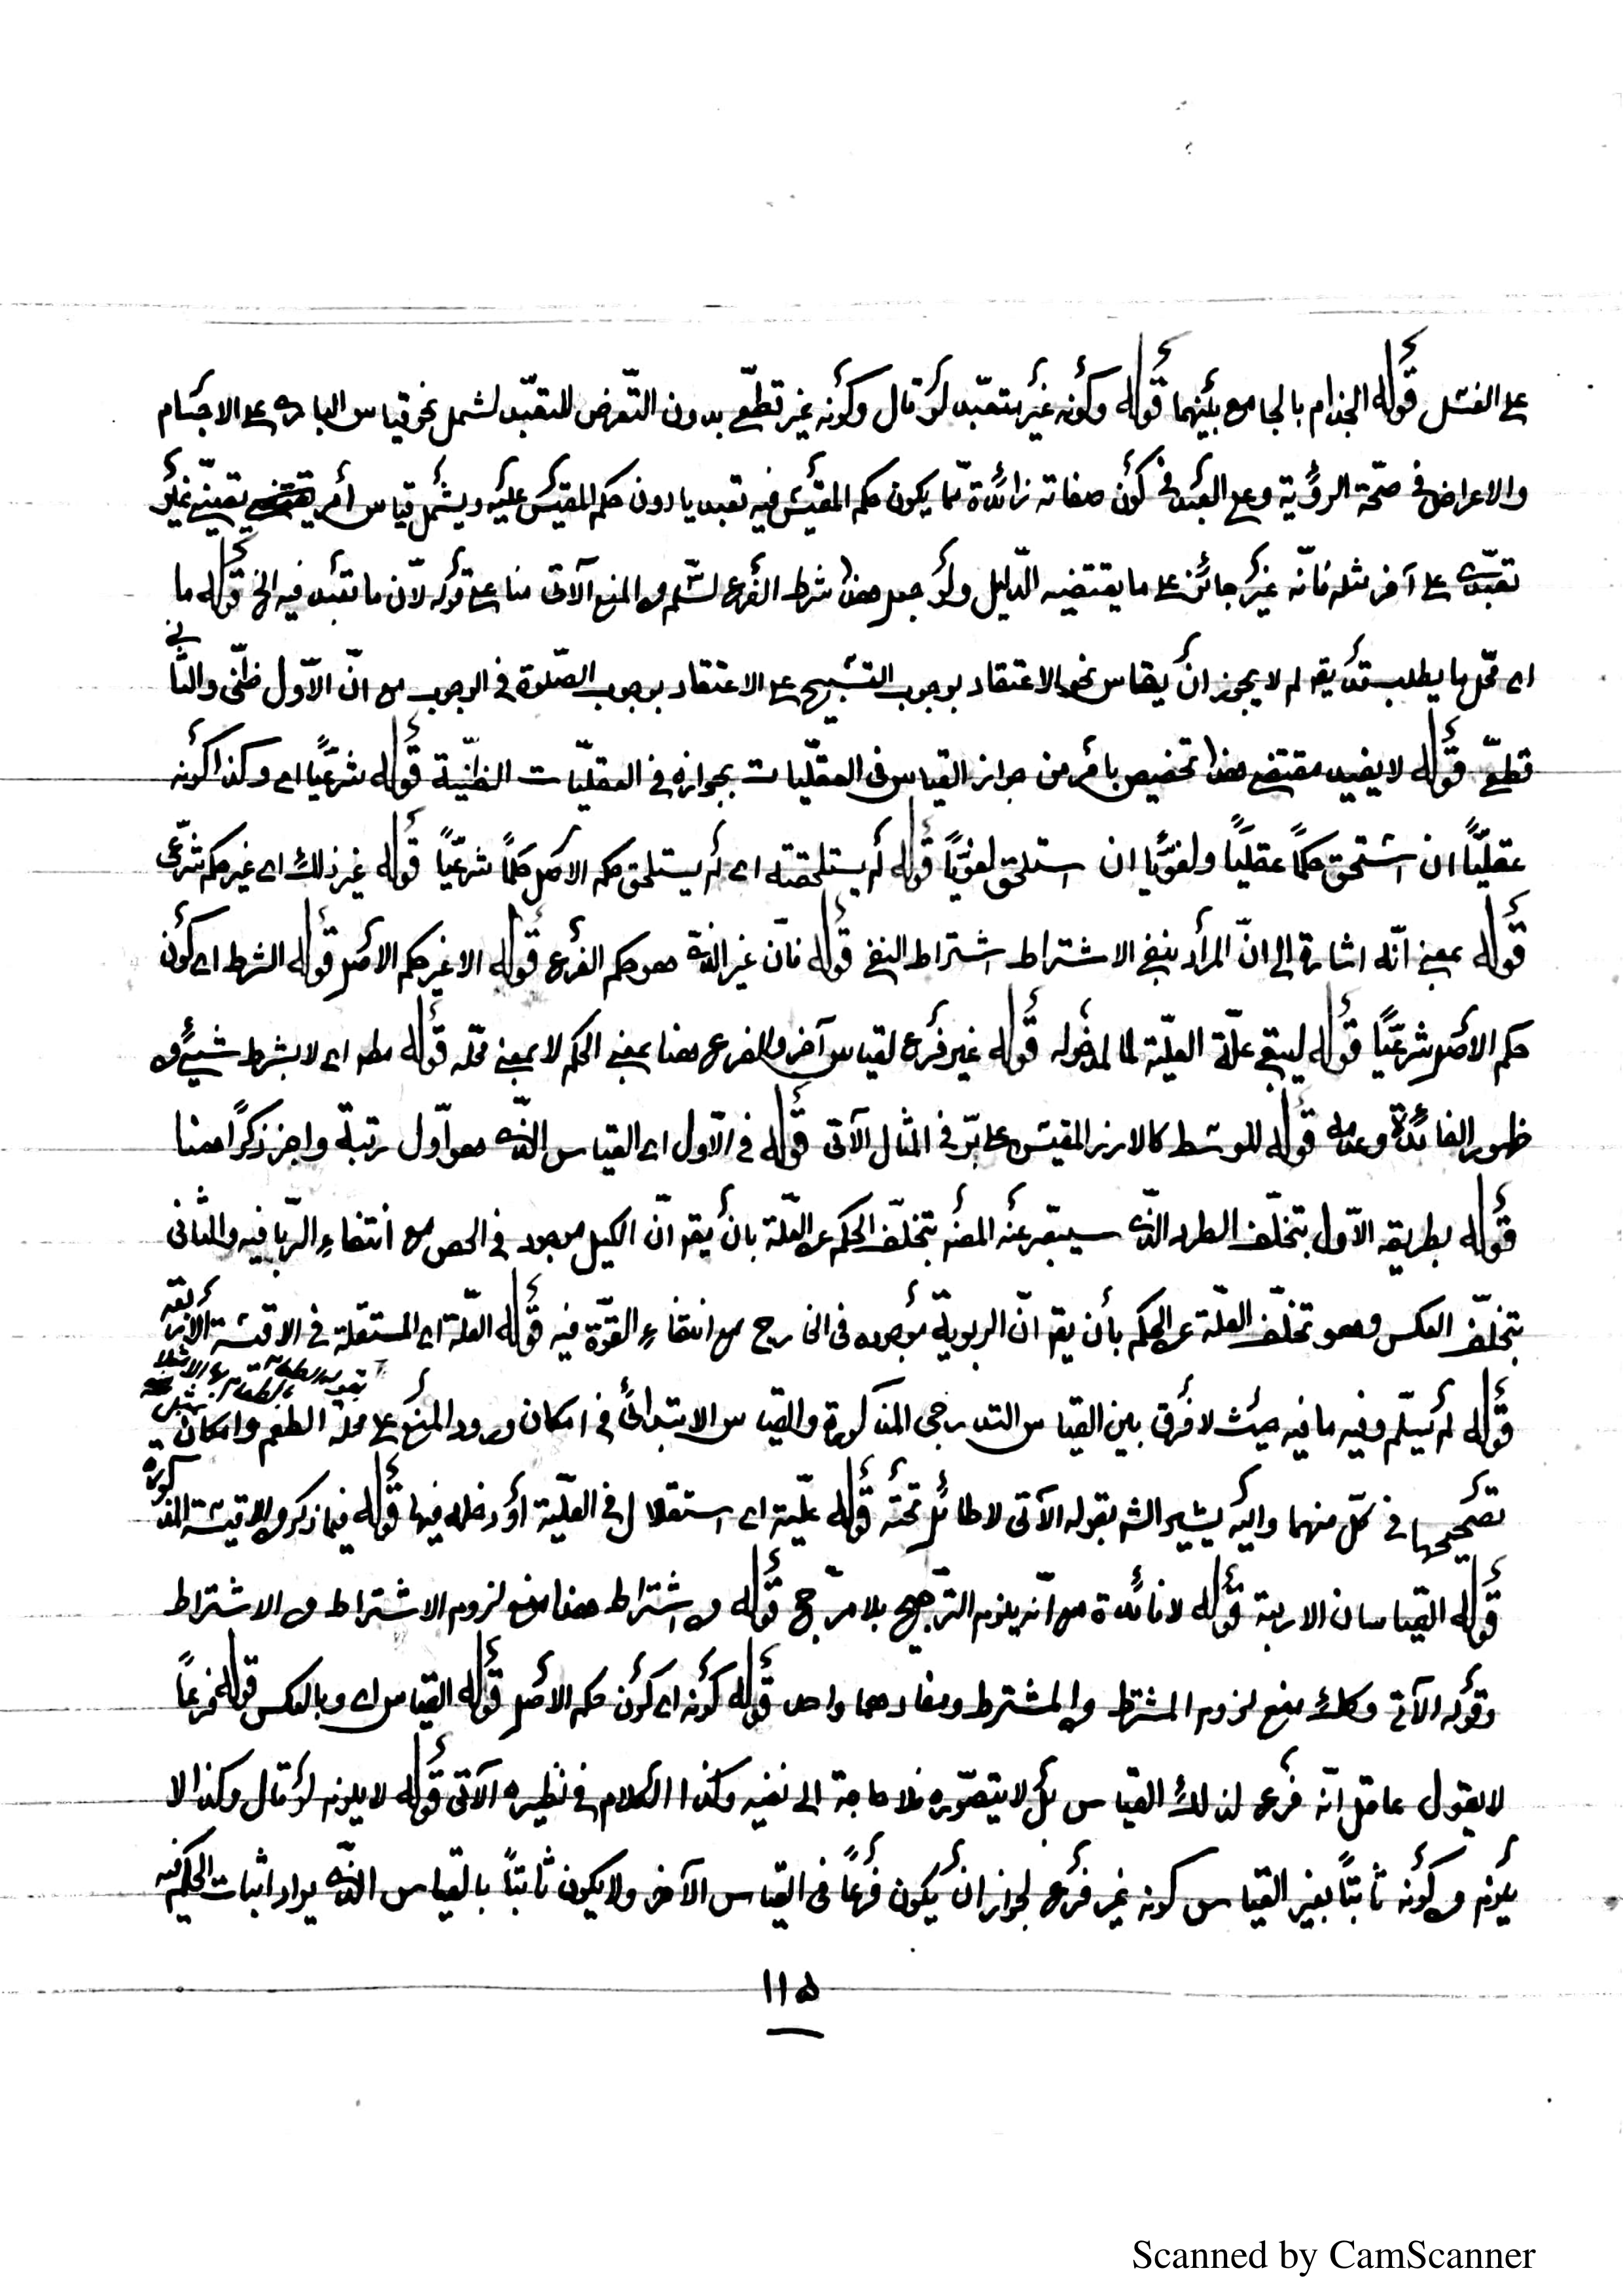 على الغسل قوله الجذام بالجامع بينهما قوله وكونه غير متعبد لو قال وكونه غير قطعي بدون التعرض للتعبد لشمل نحو قياس الباري على الاجسام
والاعراض في صحة الرؤية وعلى العبد في كون صفاته زائدة مما يكون حكم المقيس فيه تعبديا دون حكم المقيس عليه ويشمل قياس أمر يقينيّ غير
تعبدي على آخر مثله فانه غير جائز على ما يقتضيه الدليل ولو جعل هذا شرط الفرع لسلم من المنع الآتى منا على قوله لان ما تعبد فيه الخ قوله ما
اى محل ما يطلب قد يقه لم لا يجوز ان يقاس نحو الاعتقاد بوجوب التسبيح على الاعتقاد بوجوب الصلوة في الوجوب مع انّ الاوّل ظنّى والثانى
قطعىّ قوله لا يفيد مقتضى هذا تخصيص ما مر من جواز القياس فى العقليات بجوازه في العقليّات الظنّية قوله شرعيّا اى وكذا كونه
عقليّا ان استلحق حكماً عقليّاً ولغويّا ان استلحق لغويّاً قوله لم يستلحقته اى لم يستلحق حكم الاصل حكماً شرعيّاً قوله غير ذلك اى غير حكم شرعى
قوله بمعنى انّه اشارة الى انّ المراد بنفى الاشتراط اشتراط النفى قوله فان غير الذى هو حكم الفرع قوله الا غير حكم الاصل قوله الشرط اى كون
حكم الاصل شرعيّاً قوله ليبقى علّة العليّة لما لمدخوله قوله غير فرع لقياس آخر والفرع هنا بمعنى الحكم لا بمعنى محله قوله مطه اى لا بشرط شيئ من
ظهور الفائدة وعدمه قوله للوسط كالارز المقيس على برّ في المثال الآتى قوله في الاول اى القياس الذى هو اوّل رتبة واخر ذكراً هنا
قوله بطريقه الاوّل بتخلف الطرد الذى سيعبّر عنه المصنف بتخلّف الحكم عن العلّة بان يقه انّ الكيل موجود في الجص مع انتفاء الرّبا فيه والثانى
بتخلّف العكس وهو تخلّف العلّة عن الحكم بأن يقه انّ الربوية موجوده فى الخارج مع انتفاء القوّة فيه قوله العلّة اى المستقلة في الاقيسة الاربعة
قوله لم يسلم وفيه ما فيه حيث لا فرق بين القياس التدريجى المذكورة والقياس الابتدائى في امكان ورود المنع على محلّة الطعم وامكان
تصحيحها في كلّ منهما واليه يشير الشه بقوله الآتى لا طائل تحته قوله علّية اى استقلال في العليّة أو دخله فيها قوله فيما ذكر من الاقيسة المذكورة
قوله القياسان الاربعة قوله لا فائدة مع انّه يلزم الترجيح بلا مرجح قوله من اشتراط هذا منع لزوم الاشتراط من الاشتراط
وقوله الآتى وكك منع لزوم المشترط من المشترط ومفادهما واحد قوله كونه اى كون حكم الاصل قوله القياس اى وبالعكس قوله فرعاً
لا يقول عاقل انّه فرع لذلك القياس بل لا يتصوّره فلا حاجة الى نفيه وكذا الكلام في نظيره الآتى قوله لا يلزم لو قال وكذا لا
يلزم من كونه ثابتاً بغير القياس كونه غير فرع لجواز ان يكون فرعاً فى القياس الآخر ولا يكون ثابتاً بالقياس الذى يراد اثبات الحكم فيه
١١٥
Scanned by CamScanner